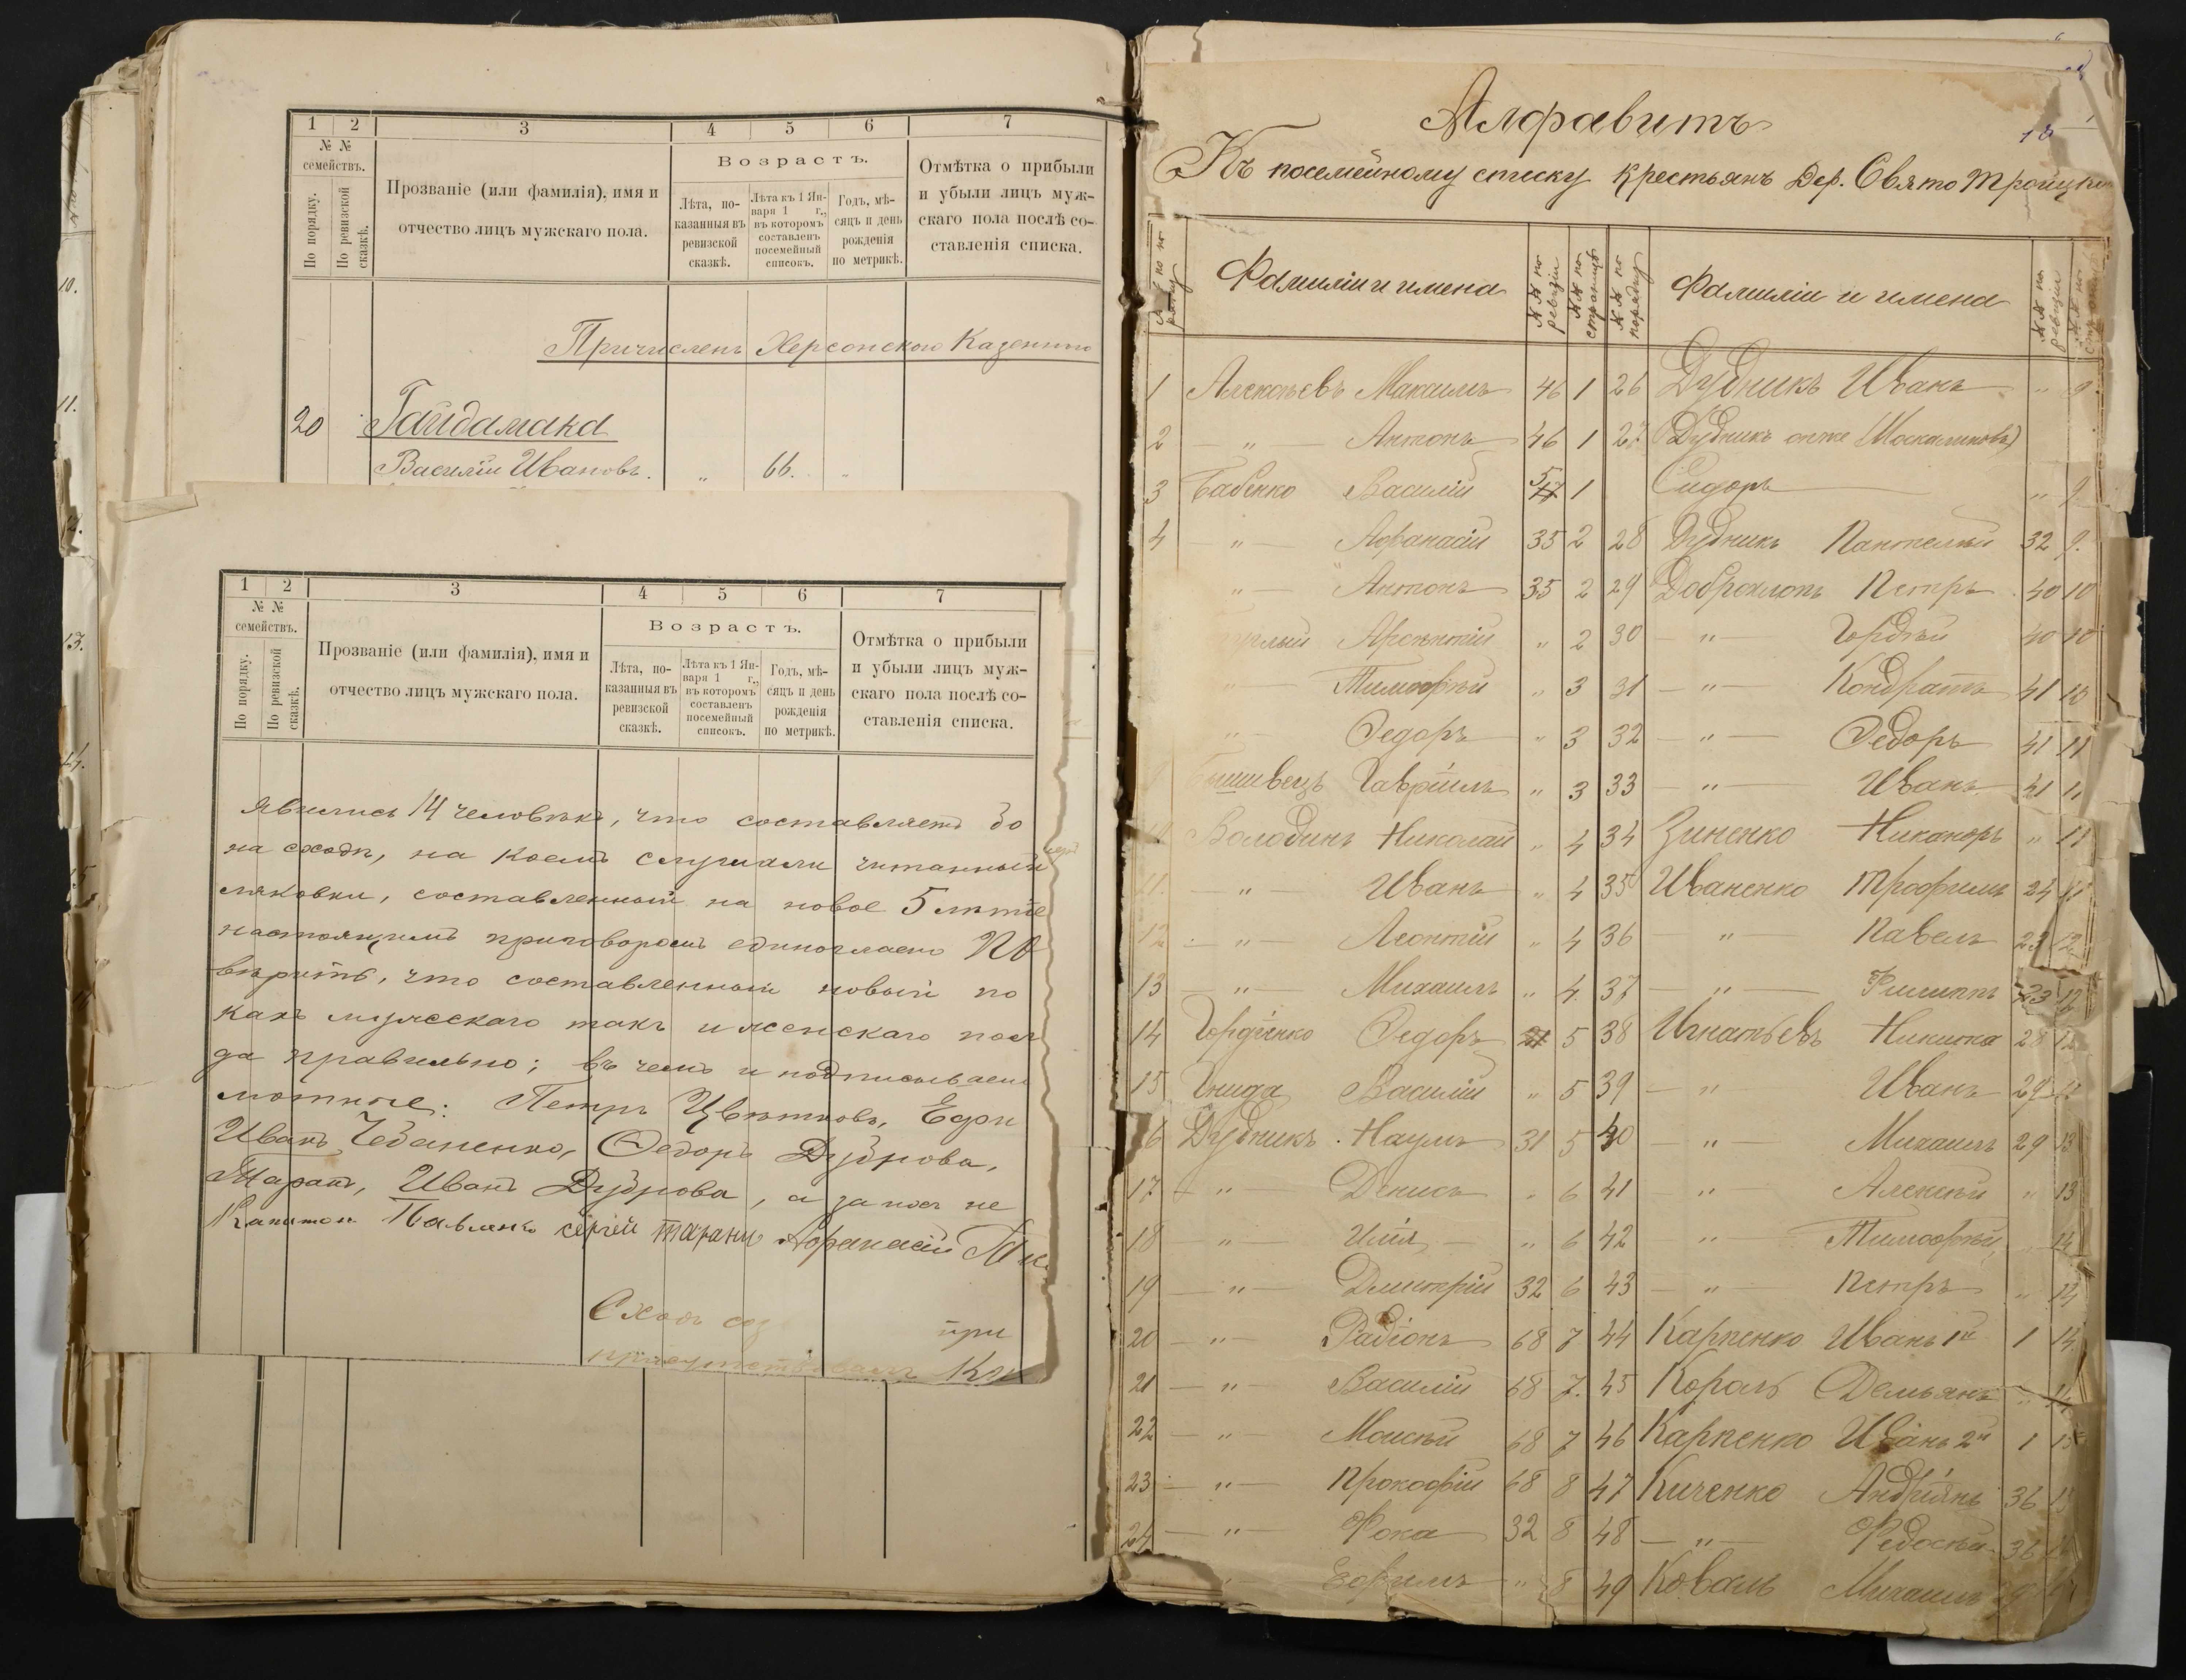 1 2 3 4 5 6 7
№ №
семействъ.
По порядку.
По ревизской сказкѣ.
Прозваніе (или фамилія), имя и
отчество лицъ мужскаго пола.
Возрастъ.
Лѣта, по-
казанныя въ
ревизской
сказкѣ.
Лѣта къ 1 Ян-
варя 1 г.,
въ которомъ
составленъ
посемейный
списокъ.
Годъ, мѣ-
сяцъ и день
рожденія
по метрикѣ.
Отмѣтка о прибыли
и убыли лицъ муж-
скаго пола послѣ со-
ставленія списка.
Причисленъ Херсонскою Казенною
20 Гайдамака
Василій Ивановъ. " 66. "
1 2 3 4 5 6 7
№ №
семействъ.
По порядку.
По ревизской сказкѣ.
Прозваніе (или фамилія), имя и
отчество лицъ мужскаго пола.
Возрастъ.
Лѣта, по-
казанныя въ
ревизской
сказкѣ.
Лѣта къ 1 Ян-
варя 1 г.,
въ которомъ
составленъ
посемейный
списокъ.
Годъ, мѣ-
сяцъ и день
рожденія
по метрикѣ.
Отмѣтка о прибыли
и убыли лицъ муж-
скаго пола послѣ со-
ставленія списка.
явились 14 человѣкъ, что составляетъ бо
на сходъ, на коемъ слушали читанный
ляковки, составленный на новое 5 лѣтіе
настоящимъ приговоромъ единогласно
вѣрить, что составленный новый по
какъ мужескаго такъ и женскаго пол
да правильно; въ чемъ и подписываем
мотные: Петръ Цвѣтковъ,
Иванъ Чебаненко, Федоръ Дуброва,
Таранъ, Иванъ Дуброва, а за не
Капитон Павленко сергей таранъ Афанасій
Сходъ при
присутствовалъ
10.
11.
13.
14.
Алфавитъ
Къ посемейному списку крестьянъ Дер. Свято Троицкой
№№ по порядку
Фамиліи и имена
№№ по ревизіи
№№ по страницѣ
№№ по порядку
Фамиліи и имена
№№ по ревизіи
1 Алексѣевъ Максимъ 46 1 26 Дудникъ Иванъ " 9
2 — " — Антонъ 46 1 27 Дудникъ онже (Москаленковъ)
3 Бабенко Василій 1 Сидоръ " 9
4 — " — Афанасій 35 2 28 Дудникъ Пантелѣй 32 9.
" — Антонъ 35 2 29 Доброклопъ Петръ 40 10
Арсентій " 2 30 — " — Гордѣй 40 10
Тимофѣй " 3 31 — " — Кондратъ 41 10
Федоръ " 3 32 — " — Федоръ 41 11
Гавріилъ " 3 33 — " — Иванъ 41 11
Володинъ Николай " 4 34 Зиненко Никаноръ " 11
11. — " — Иванъ " 4 35 Иваненко Трофимъ 24 11
12 — " — Леонтій " 4 36 — " — Павелъ 23 12
13 — " — Михаилъ " 4. 37 — " — Филиппъ 23 12
14 Гордіенко Федоръ 5 38 Игнатьевъ Никита 28 12
15 Гнида Василій " 5 39 — " Иванъ 29
16 Дудникъ Наумъ 31 5 40 — " — Михаилъ 29 13
17 — " — Денисъ " 6 41 — " — Алексѣй " 13
18 — " — Илія " 6 42 " — Тимофѣй " 14
19 — " — Дмитрій 32 6 43 — " — Петръ " 14
20 — " — Радіонъ 68 7 44 Карпенко Иванъ 1й 1 14
21 — " — Василій 68 7. 45 Король Демьянъ " 14
22 — " — Моисѣй 68 7 46 Карпенко Иванъ 2й 1 15
23 — " — Прокофій 68 8 47 Киченко Андріянъ 36 15
24 — " — Фока 32 8 48 — " — Федосѣй 36
Ефимъ " 8 49 Коваль Михаилъ